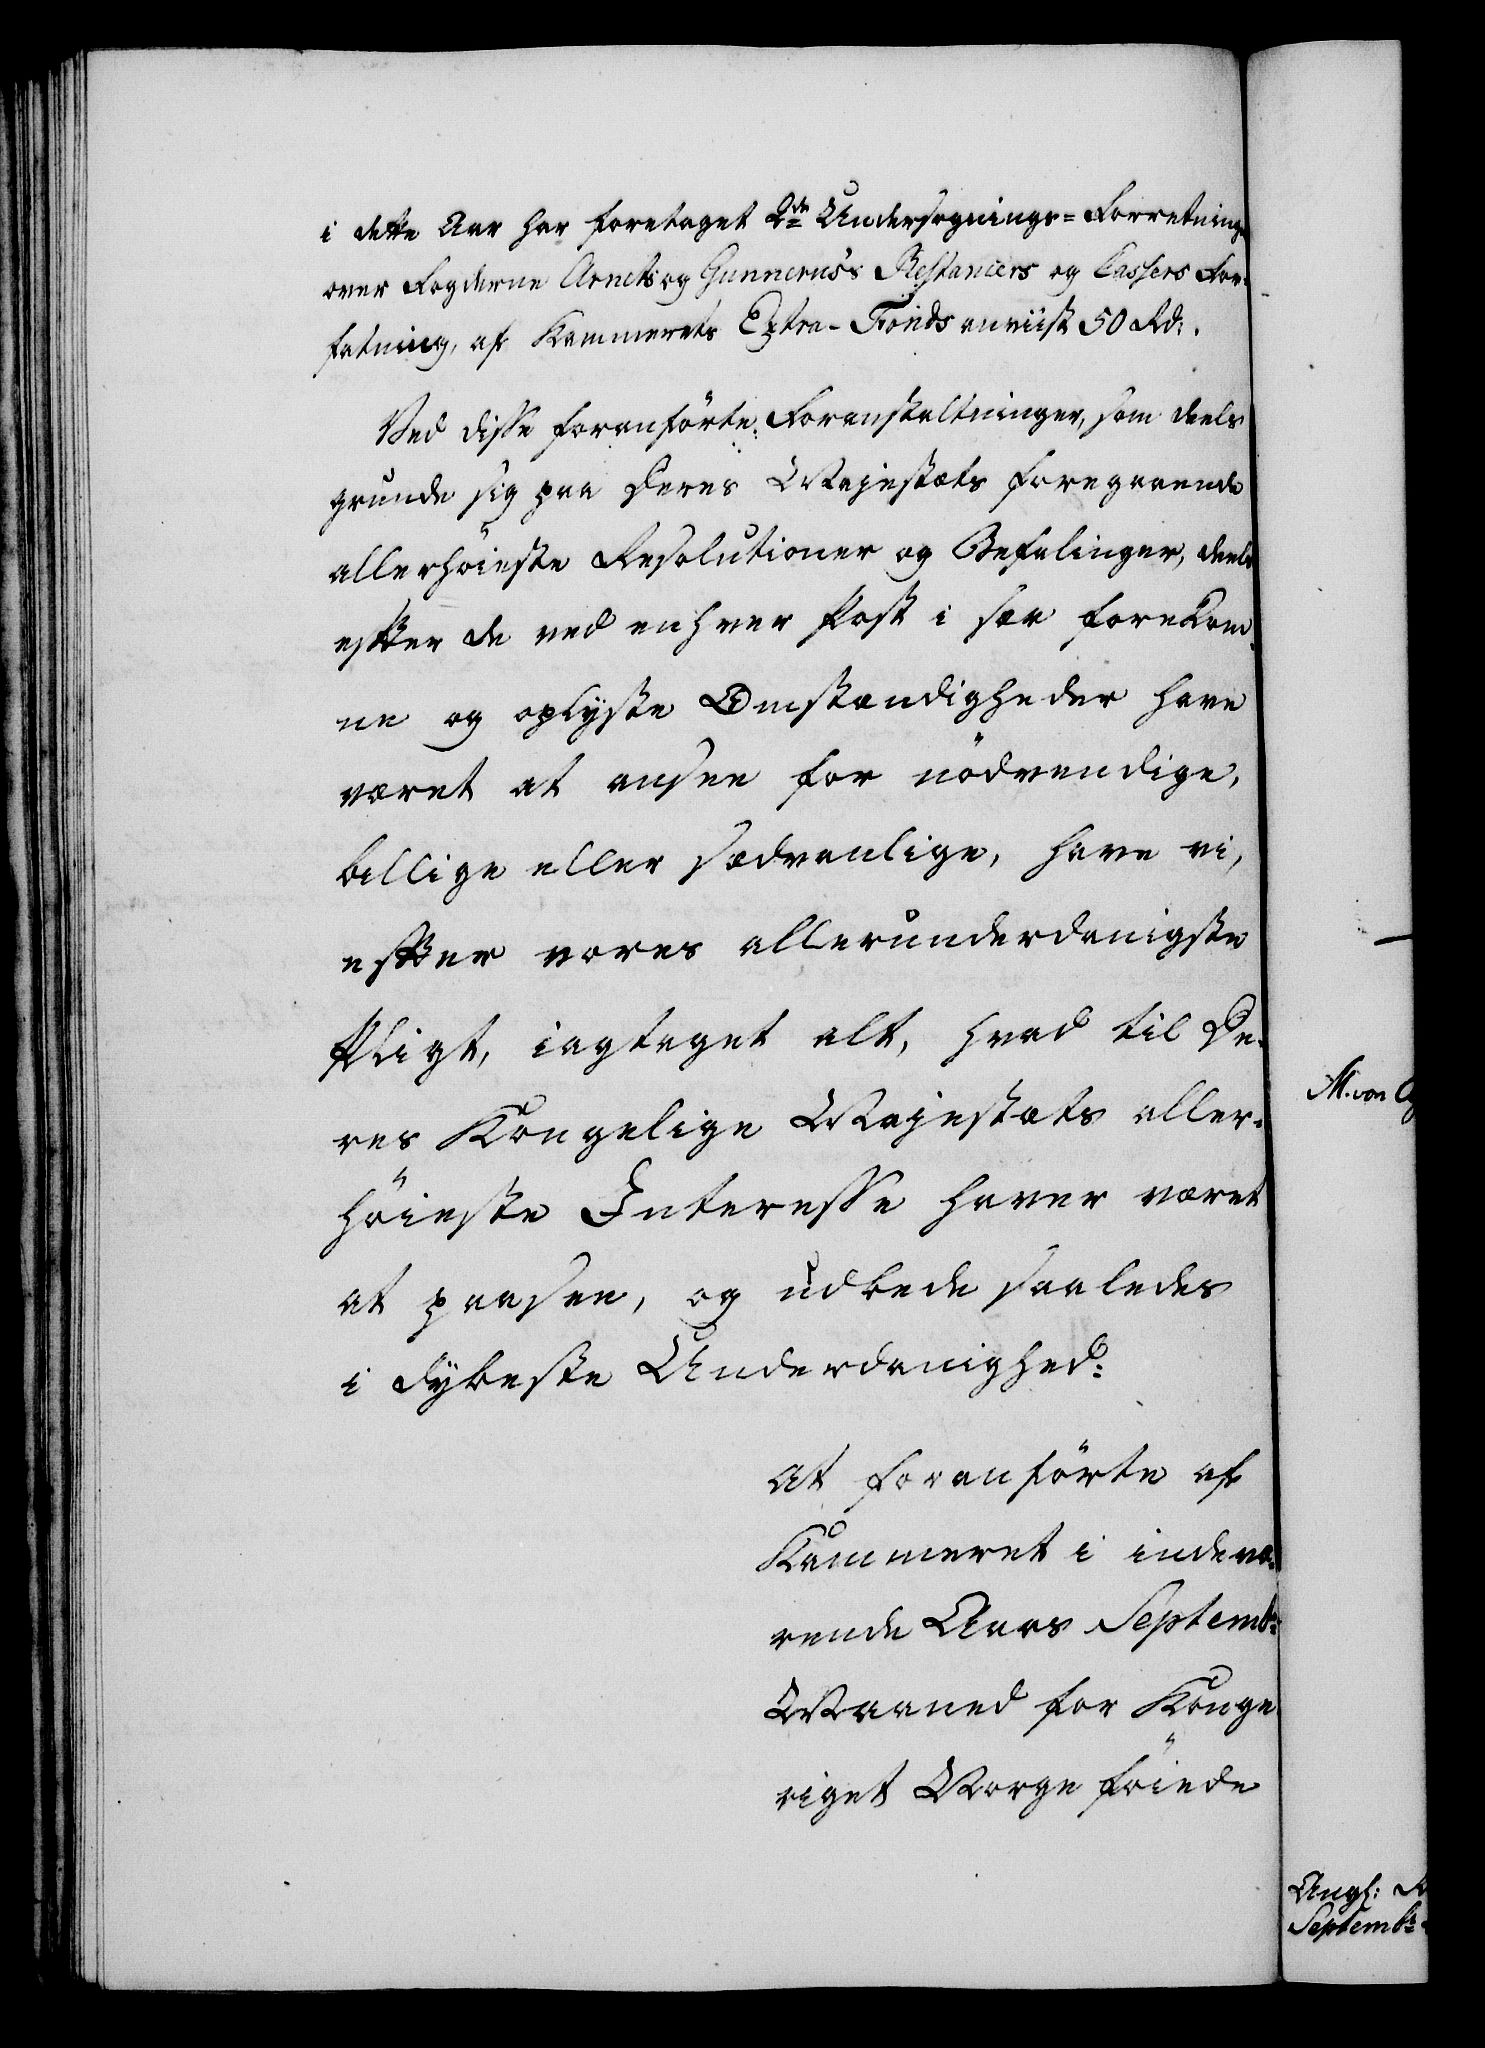 i dette Aar har foretaget 2de Undersøgnings=Forretninge
over Fogderne Arnets og Gunnerus's Restancers og Cassers For-
fatning, af Kammerets Extra-Fonds anviist 50 Rd:.
Ved disse foranförte Foranstaltninger, som deels
grunde sig paa Deres Majestæts foregaaende
allerhöieste Resolutioner og Befalinger, deels
efter de ved enhver Post i sær forekom-
ne og oplyste Omstændigheder have
været at ansee for nödvendige,
billige eller sædvanlige, have vi,
efter vores allerunderdanigste
Pligt, iagtaget alt, hvad til De-
res Kongelige Majestæts aller-
höieste Interesse haver været
at paasee, og udbede saaledes
i dybeste Underdanighed:
at foranförte af
Kammeret i indevæ-
rende Aars Septembr:
Maaned for Konge
riget Norge föiede
M. von
Angl:
Septembr: